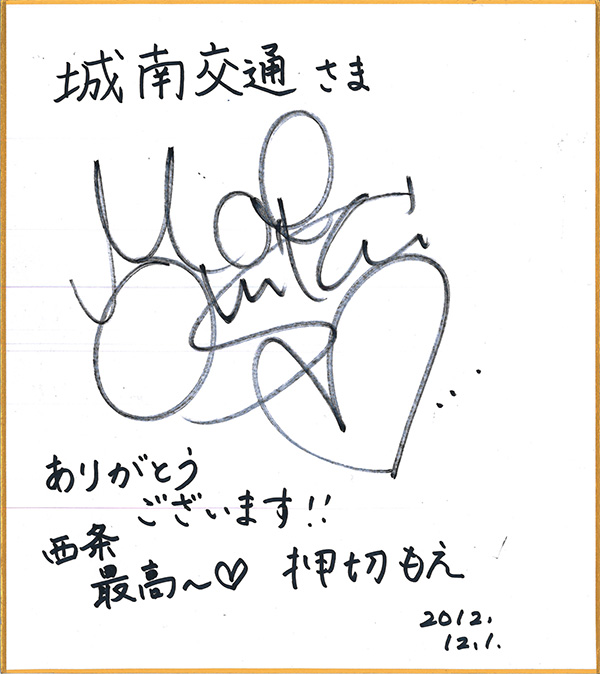 城南交通さま
ありがとう
ございます!!
西条
最高〜♡
押切もえ
2012.
12.1.